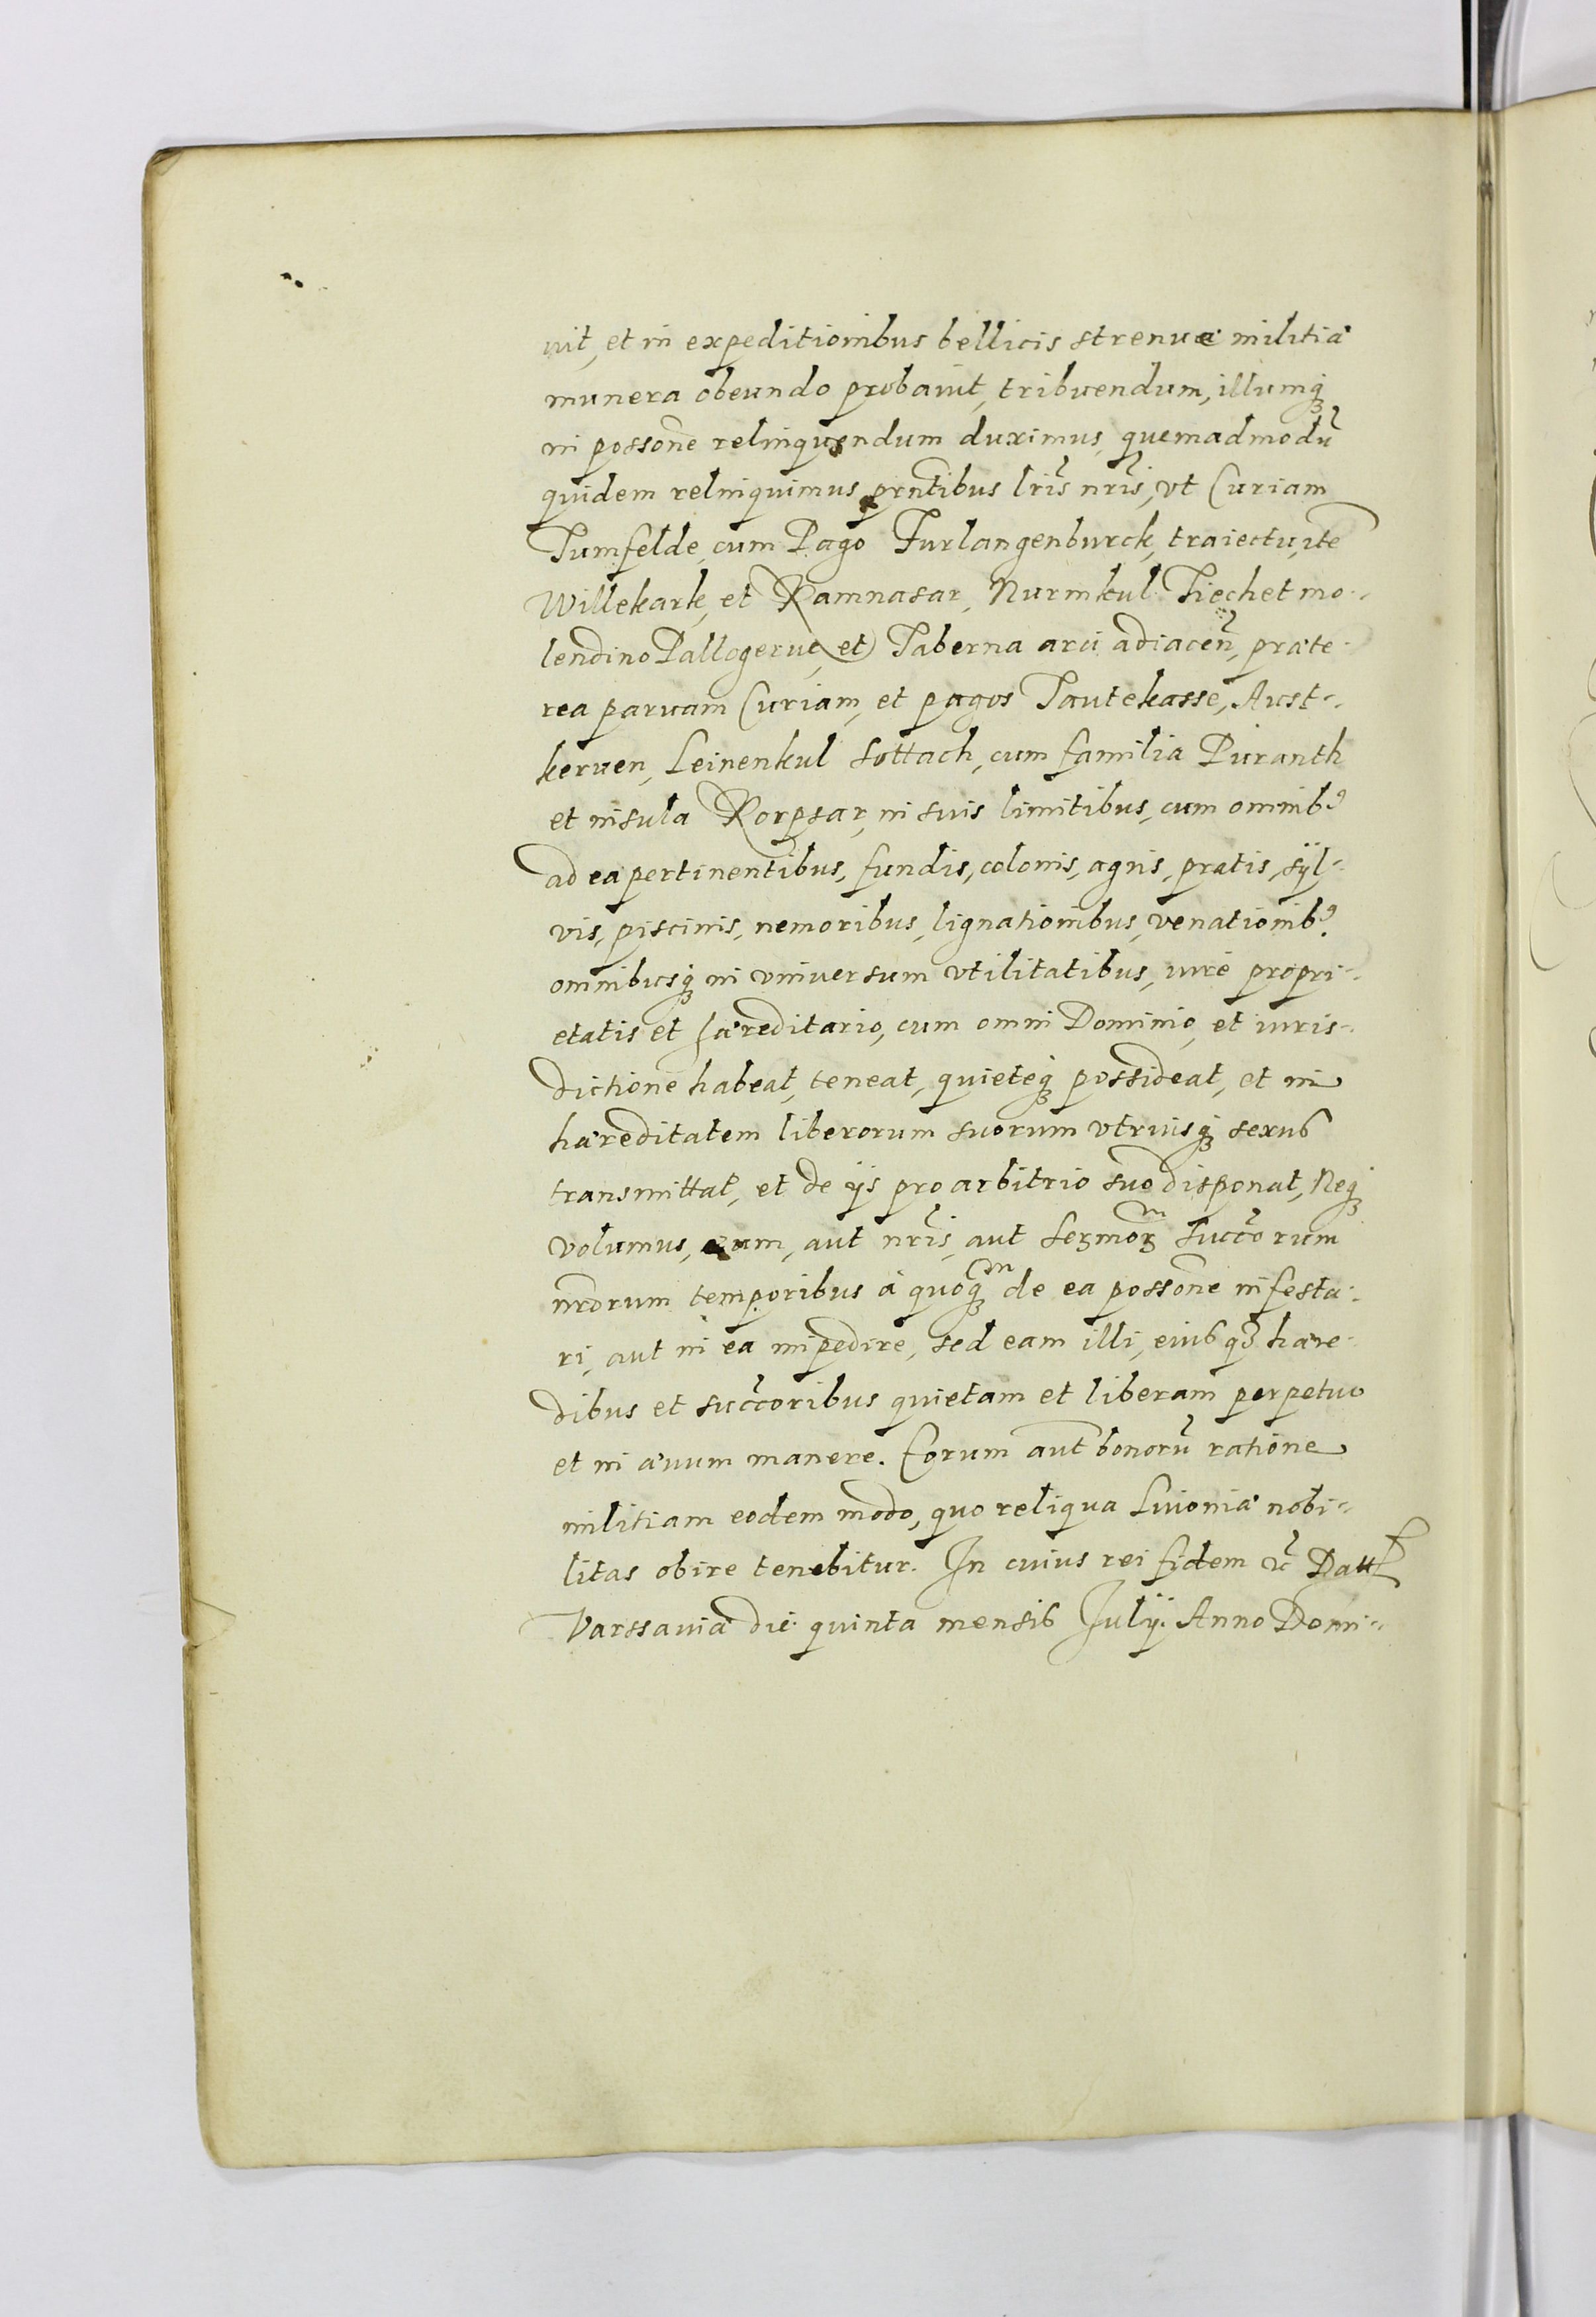 uit, et in expeditionibus bellicis strenue militiæ
munera obeundo probauit, tribuendum, illumq́ꝫ
in possone relinquendum duximus, quemadmodū
quidem relinquimus prntibus lris nris, vt Curiam
Tumfelde, cum Pago Furlangenburck, traiectu, ite
Willekark, et Ramnasar, Nurmkul Tiechet mo-
lendino Pallogerue, et Taberna arci adiacen, præte-
rea paruam Curiam, et pagos Tautekasse, Aust-
keruen, Leinenkul Sottach, cum familia Puranth
et insula Korpsar, in suis limitibus, cum omnibꝰ
ad ea pertinentibus, fundis, colonis, agris, pratis, syl-
vis, piscinis, nemoribus, lignationibus, venationibꝰ
omnibusq́ꝫ in vniuersum vtilitatibus, iure propri-
etatis et hæreditario, cum omni Dominio, et iuris-
dictione habeat, teneat, quieteq́ꝫ possideat, et in
hæreditatem liberorum suorum vtriusq́ꝫ sexus
transmittat, et de ijs pro arbitrio suo disponat, Neq́ꝫ
volumus, eum, aut nris, aut Sermor succorum
nrorum temporibus à quoqꝫ de ea possone infesta-
ri, aut in ea impedire, sed eam illi, eiusqꝫ hære-
dibus et succoribus quietam et liberam perpetuo
et in æuum manere. Eorum aut bonorū ratione
militiam eodem modo, quo reliqua Liuoniæ nobi-
litas obire tenebitur. In cuius rei fidem &c Datt
Varssauiæ die quinta mensis Julij. Anno Domi-